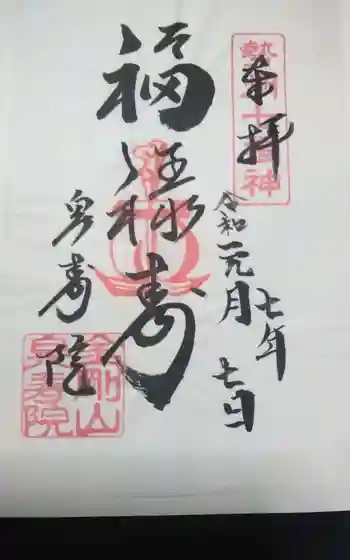 奉拝
令和元年
七月
七日
福禄寿
寿院
七福神
金剛山
寿院